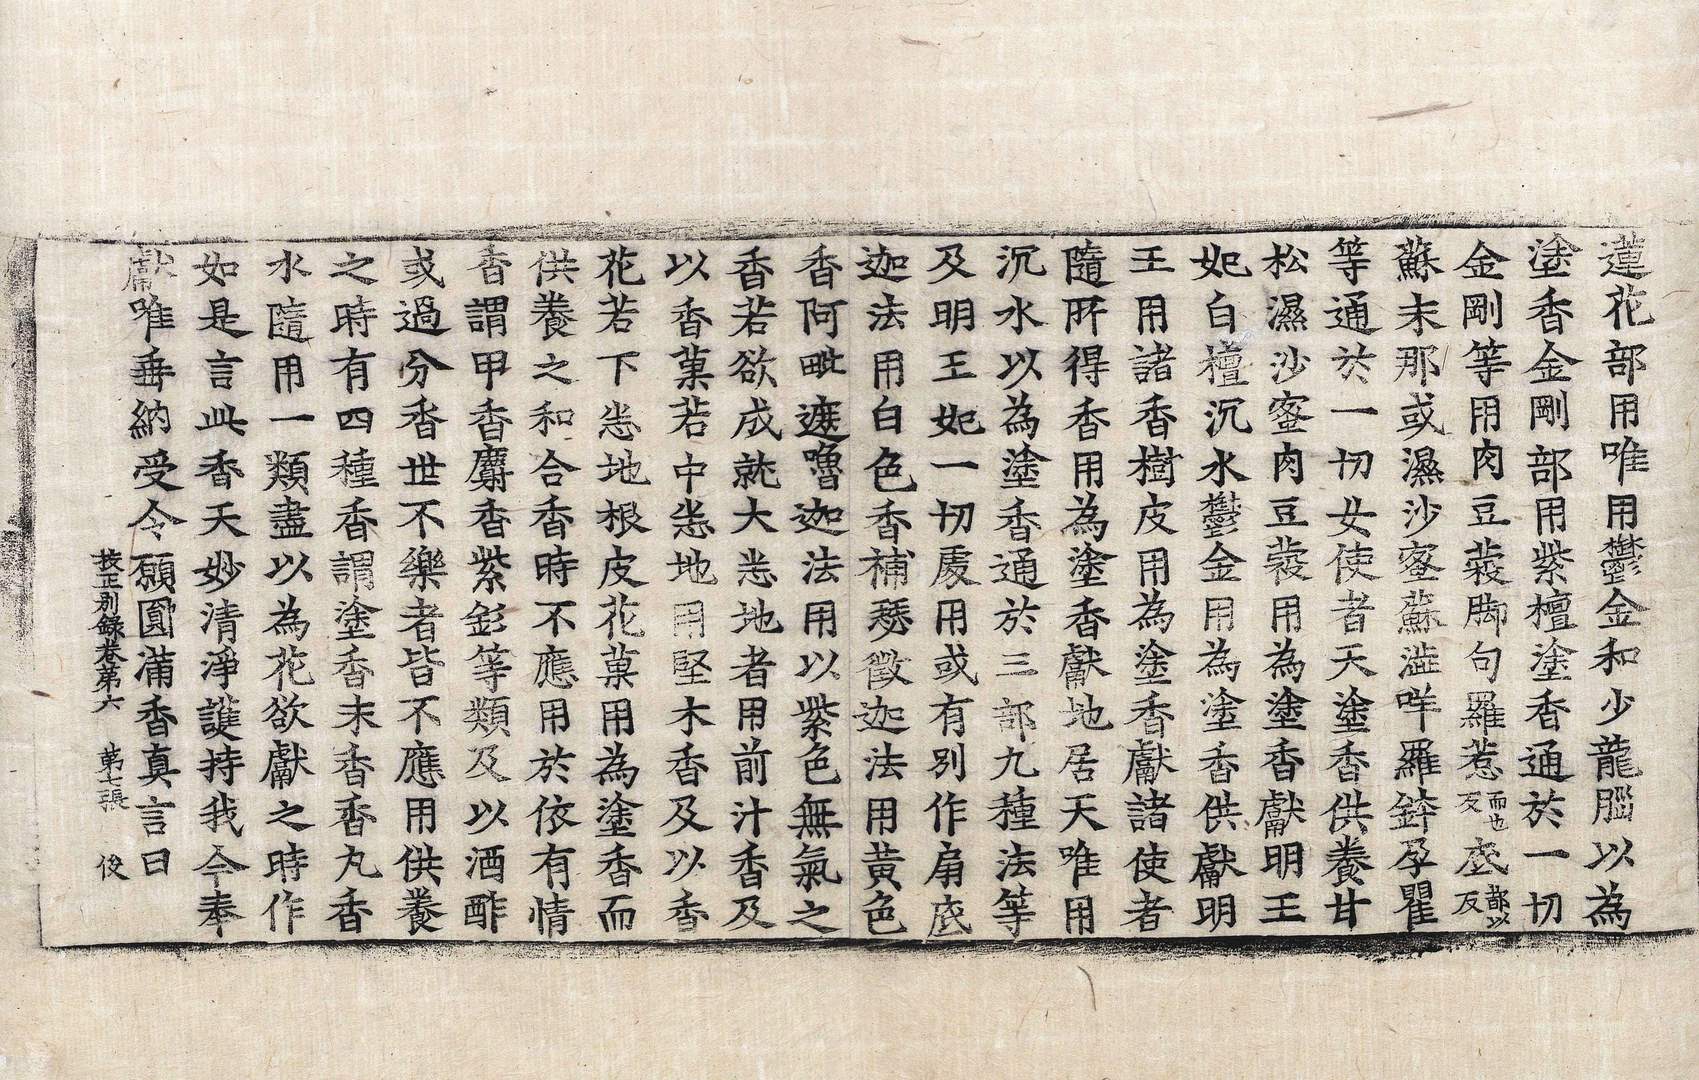 蓮花部用唯用鬱金和少龍腦以為
塗香金剛部用紫檀塗香通於一切
金剛等用肉豆蔲脚句羅惹而也反底都以反
蘇末那或濕沙蜜蘇澁咩羅鉢孕瞿
等通於一切女使者天塗香供養甘
松濕沙蜜肉豆蔲用為塗香獻明王
妃白檀沉水鬱金用為塗香供獻明
王用諸香樹皮用為塗香獻諸使者
隨所得香用為塗香獻地居天唯用
沉水以為塗香通於三部九種法等
及明王妃一切處用或有別作扇底
迦法用白色香補瑟徵迦法用黃色
香阿毗遮嚕迦法用以紫色無氣之
香若欲成就大悉地者用前汁香及
以香菓若中悉地用堅木香及以香
花若下悉地根皮花菓用為塗香而
供養之和合香時不應用於依有情
香謂甲香麝香紫釤等類及以酒酢
或過分香世不樂者皆不應用供養
之時有四種香謂塗香末香香丸香
水隨用一類盡以為花欲獻之時作
如是言此香天妙清淨護持我今奉
獻唯垂納受令願圓滿香真言曰
挍正別錄卷第六 第七張 俊